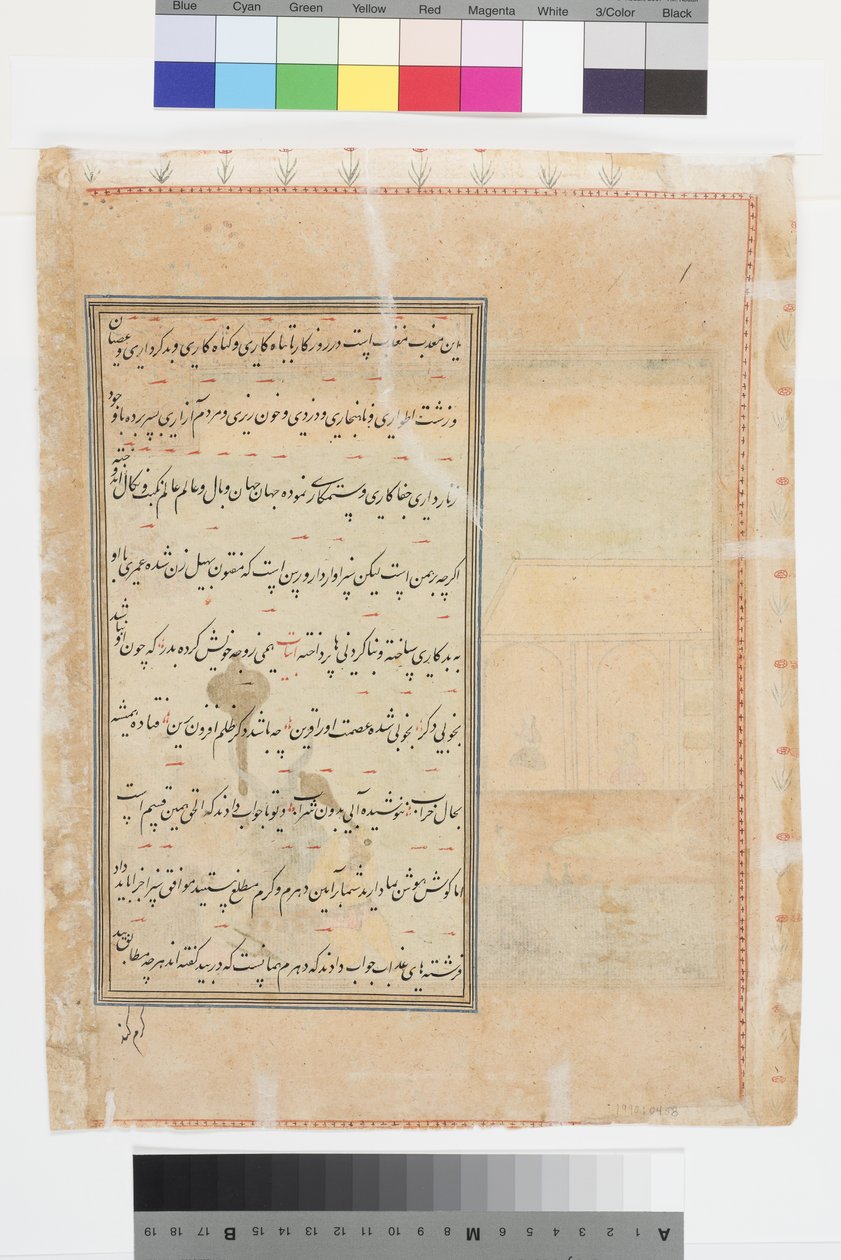 Blue Cyan Green Yellow Red Magenta White 3/Color Black
این معذب معاتب است در روزگار با تباه کاری و گناه کاری و بدکرداری و عصیان
و زشت اطواری و ناهنجاری و دزدی و خون ریزی و مردم آزاری بسر برده با وجود
زنارداری جفاکاری و ستمکاری نموده جهان جهان وبال و عالم عالم نکبت و نکال اندوخته
اگرچه برهمن است لیکن سزاوار دار و رسن است که مفتون سهیل زن شده عمری با او
به بدکاری ساخته و بناکردنی ها پرداخته ابیات همی زوجه خویش کرده بدر که چون او نباشد
بخوبی دگر بخوبی شده عصمت او را قرین چه باشد دگر ظلم افزون زین فتاده همیشه
بحال خراب ننوشیده آبی بدون شراب دیوتا جواب دادند که الحق همین قسم است
اما گوش هوش بما دارید شما بر آیین دهرم و کرم مطلع هستید موافق سزا جزا باید داد
فرشته های عذاب جواب دادند که دهرم همانست که در بید گفته اند هرچه مطابق بید
1990:0408
A 1 2 3 4 5 6 M 8 9 10 11 12 13 14 15 B 17 18 19